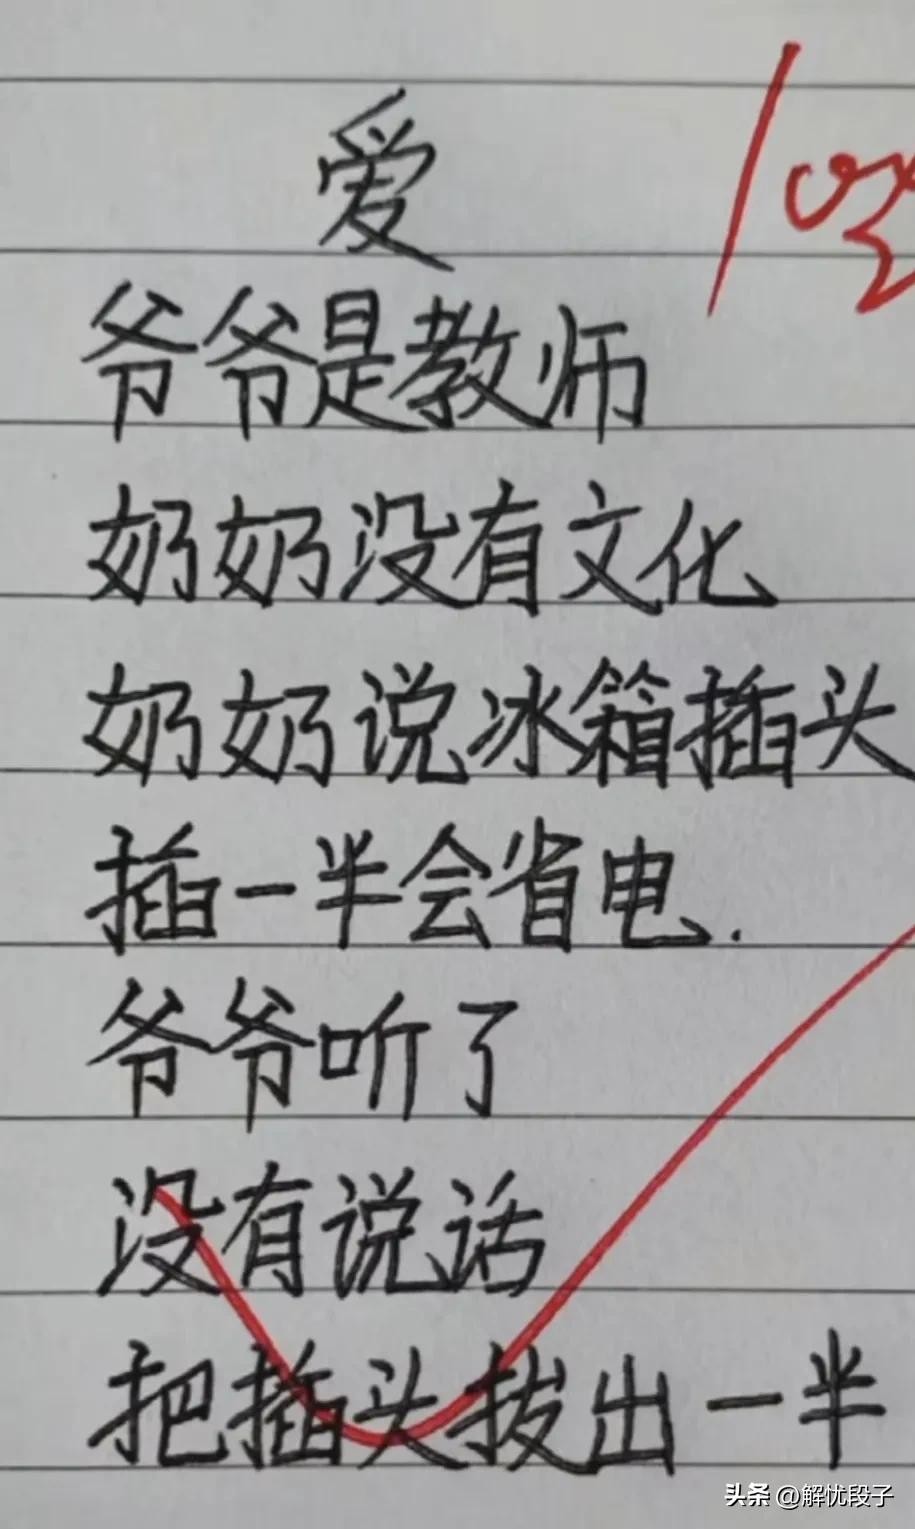 爱
爷爷是教师
奶奶没有文化
奶奶说冰箱插头
插一半会省电.
爷爷听了
没有说话
把插头拔出一半
头条 @解忧段子